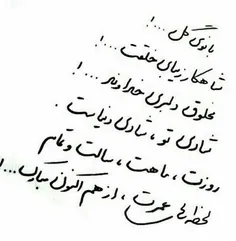 بانوی گل ...!
شاهکار زیبای خلقت ...!
مخلوق دلبری خداوند ...!
شادی تو ، شادی دنیاست .
روزت ، ماهت ، سالت و تمام
لحظه‌های عمرت ، از هم اکنون مبارک ...!